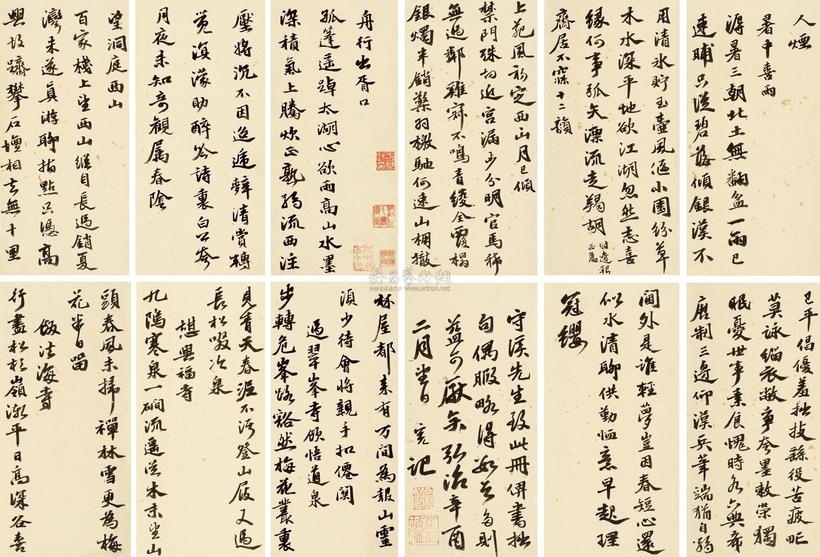 人煙
暑中喜雨
溽暑三朝北土無翻盆一雨已
連晡只從碧落傾銀漢不
用清水貯玉壺風偃小園紛草
木水深平地欲江湖忽然忘喜
緣何事弧矢漂流走羯胡
齋居不寐十二韻
上苑風初定西山月已傾
禁門殊切近宮漏少分明官馬稀
無過鄰雞寂不鳴青綾全覆榻
銀燭半銷檠羽檄馳何速山棚撤
舟行出胥口
孤篷遙踔太湖心欲雨高山水墨
深積氣上騰炊正熟弱流西注
壓將沉不因迤邐辭清賞轉
覺濛助醉吟詩裏白公誇
月夜未知奇觀屬春陰
望洞庭西山
百家棧上望西山縱目長過銷夏
灣未遂真遊聊指點只憑高
興攷躋攀石壇相去無十里
已平倡優羞拙技縣役苦疲甿
莫詠緇衣敝爭誇墨敕榮獨
眠憂世事素食愧時名典希
府制三邊仰漢兵筆端猶自
閫外是誰輕夢豈因春短心還
似水清聊供勤恤意早起理
冠纓
守溪先生致此冊俾書拙
句偶暇略得如干首則
益可厭矣弘治辛酉
二月望日寬記
林屋都來有万間為報山靈
須少待會將親手扣僊關
過翠峯寺飲悟道泉
步轉危峯路豁然梅花叢裏
見青天春泥不污登山屐又過
長松吸次泉
憩興福寺
九隝寒泉一磵流遙從木末望山
頭春風未掃禪林雪更為梅
花半日留
游法海寺
行盡松杉嶺漸平日高深谷喜